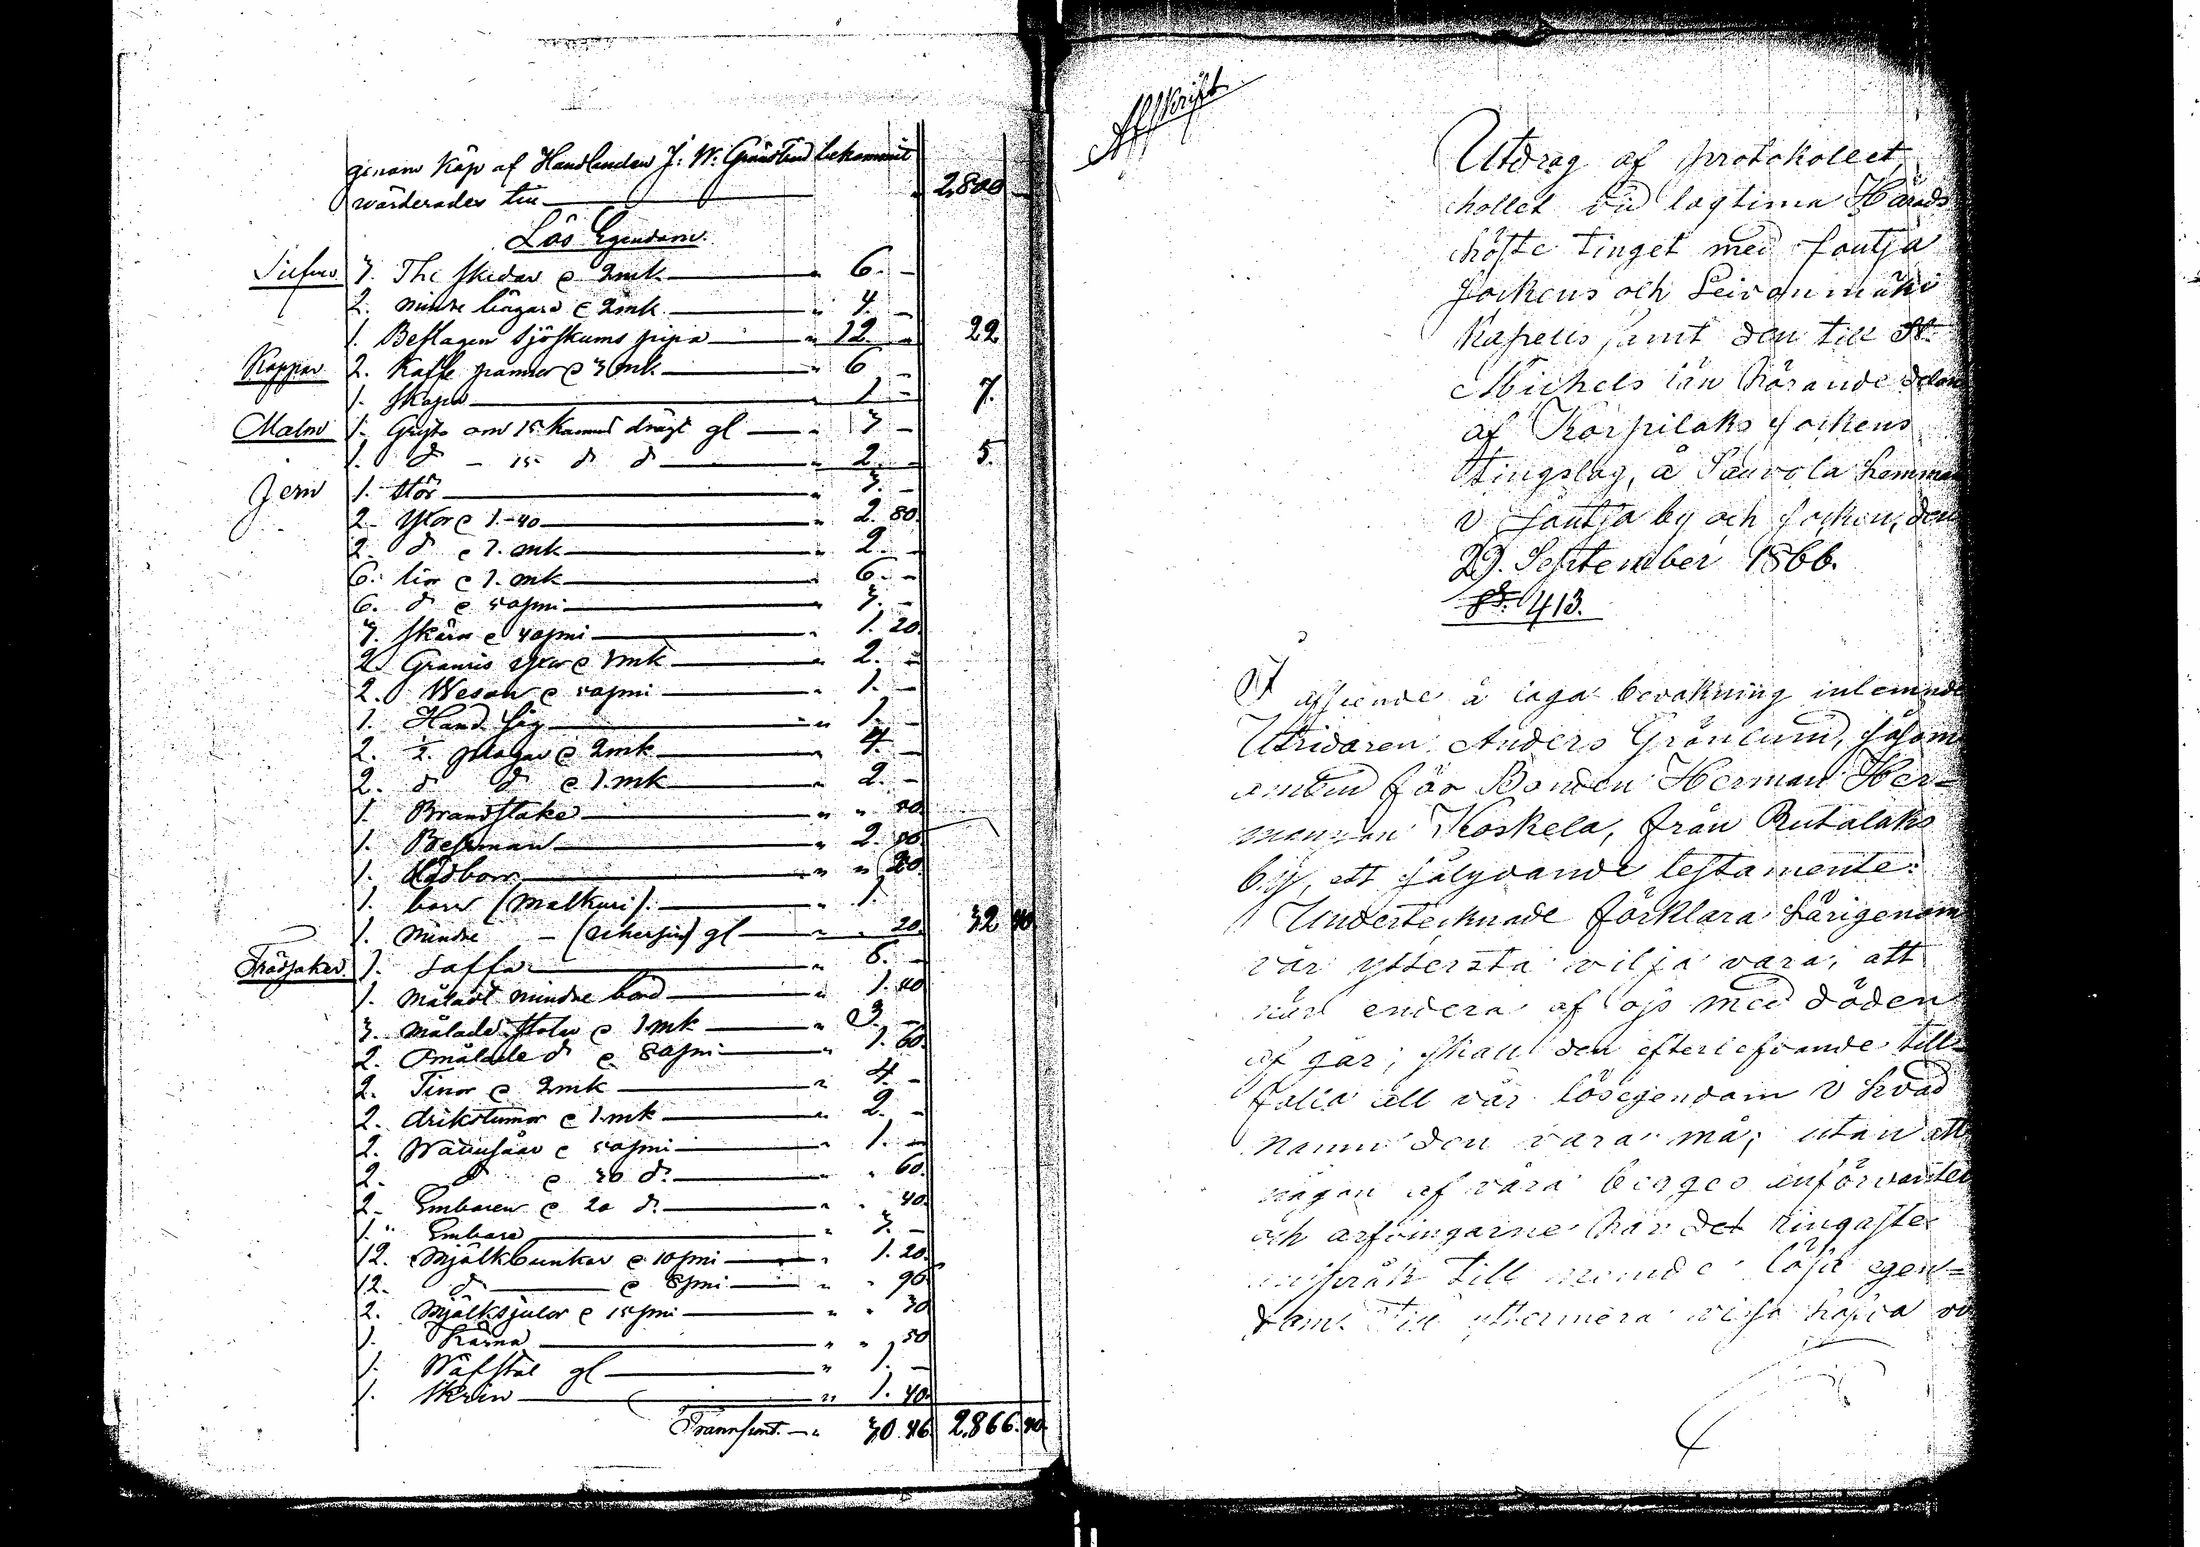 genom Köp af Handlanden J. W. Grönlund bekommit
värderades till 2,800 —
Lös Egendom.
Silfver 3. The skedar @ 2mk " 6. —
2. mindre @ 2mk " 4. —
1. Beslagen Sjöskums pipa " 12. " 22
Koppar 2. Kaffe pannor @ 3 mk " 6 —
1. skopa " 1 — 7.
Malm 1. Gryta om 15 Kannors drägt gl " 3 —
1. d — 15 d d " 2. — 5.
Jern 1. stör " 3. —
2. Yxor @ 1.40 " 2. 80.
2. d @ 1. mk " 2. —
6. liar @ 1. mk " 6. —
6. d @ 50pmi " 3. —
3. skäror @ 40pmi " 1. 20.
2. Granris yxor @ 1mk " 2. —
2. Wesan @ 50pmi " 1. —
1. Hand såg " 1. —
2. plogar @ 2mk " 4. —
2. d d @ 1. mk " 2. —
1. Brandstake " "
1. Besman " 2.
1. " " 20.
1. borr (malkuri) " 1.
1. mindre — gl " " 20. 32 40
Trädsaker 1. Soffa " 6. —
1. måladt mindre bord " 1. 40
3. målade stolar @ 1mk " 3. —
2. Omålade d @ 80pmi " 1. 60.
2. Tinor @ 2mk " 4. —
2. drikstunnor @ 1.mk " 2. —
2. Wattusåar @ 50pmi " 1. —
2. d @ 30 d. " " 60.
2. Embaren @ 20 d. " " 40.
1. Embare " 3. —
12. Mjölkbunkar @ 10pmi " 1. 20.
12. d @ 8pmi " " 96
2. Mjölksjulor @ 15pmi " " 30
1. Kärna " " 50
1. Wäfstol gl " 1. —
1. Skrin " 1. 40.
Transport. — " 30.46. 2,866.40.
Afskrift
Utdrag af protokollet,
hollet vid lagtima Härads
höfte tinget med Joutsa
Sockens och Leivonmäki
Kapells samt den till St.
Michels län hörande delen
af Korpilaks Sockens
tingslag, å Sauvola hemman
i Joutsa by och socken, den
29. September 1866.
§ 413.
I afseende å laga bevakning inlemnade
Utridaren Anders Grönlund, såsom
ombud för Bonden Herman Her=
mansson Koskela, från Rutalaks
by, ett sålydande testamente:
Undertecknade förklara härigenom
vår yttersta vilja vara, att
när endera af oss med döden
af går, skall den efterlefvande till=
falla all vår lösegendom i hvad
namn den vara må, utan att
någon af våra begges anförvanter
och arfvingarne har det ringaste
anspråk till nemnde lösa egen=
dom. Till yttermera visso hafva vi